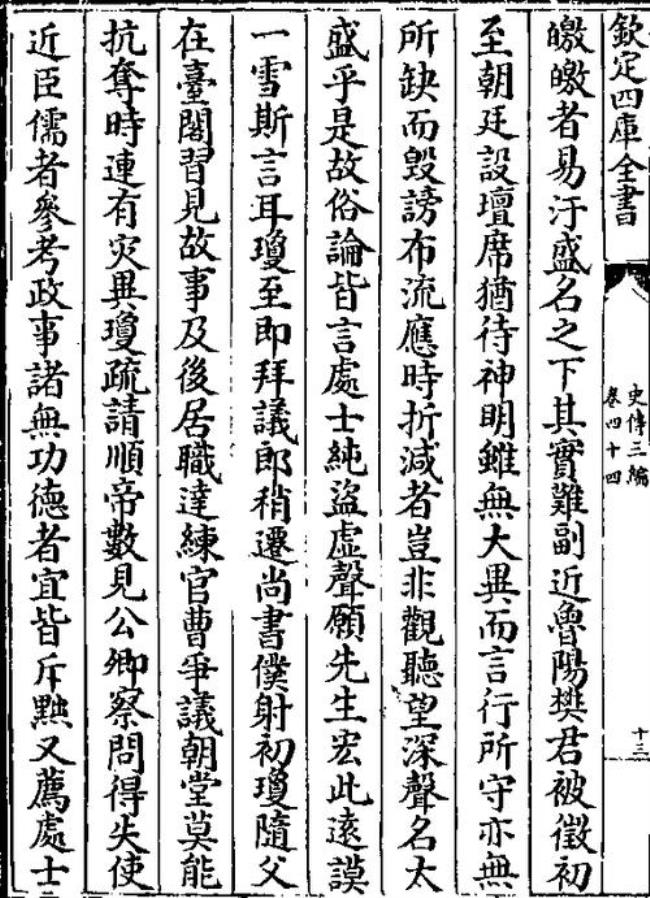 欽定四庫全書
史傳三編
卷四十四
十三
皦皦者易汙盛名之下其實難副近魯陽樊君被徵初
至朝廷設壇席猶待神明雖無大異而言行所守亦無
所缺而毀謗布流應時折減者豈非觀聽望深聲名太
盛乎是故俗論皆言處士純盜虛聲願先生宏此遠謨
一雪斯言耳瓊至即拜議郎稍遷尚書僕射初瓊隨父
在臺閣習見故事及後居職達練官曹爭議朝堂莫能
抗奪時連有灾異瓊疏請順帝數見公卿察問得失使
近臣儒者參考政事諸無功德者宜皆斥黜又薦處士